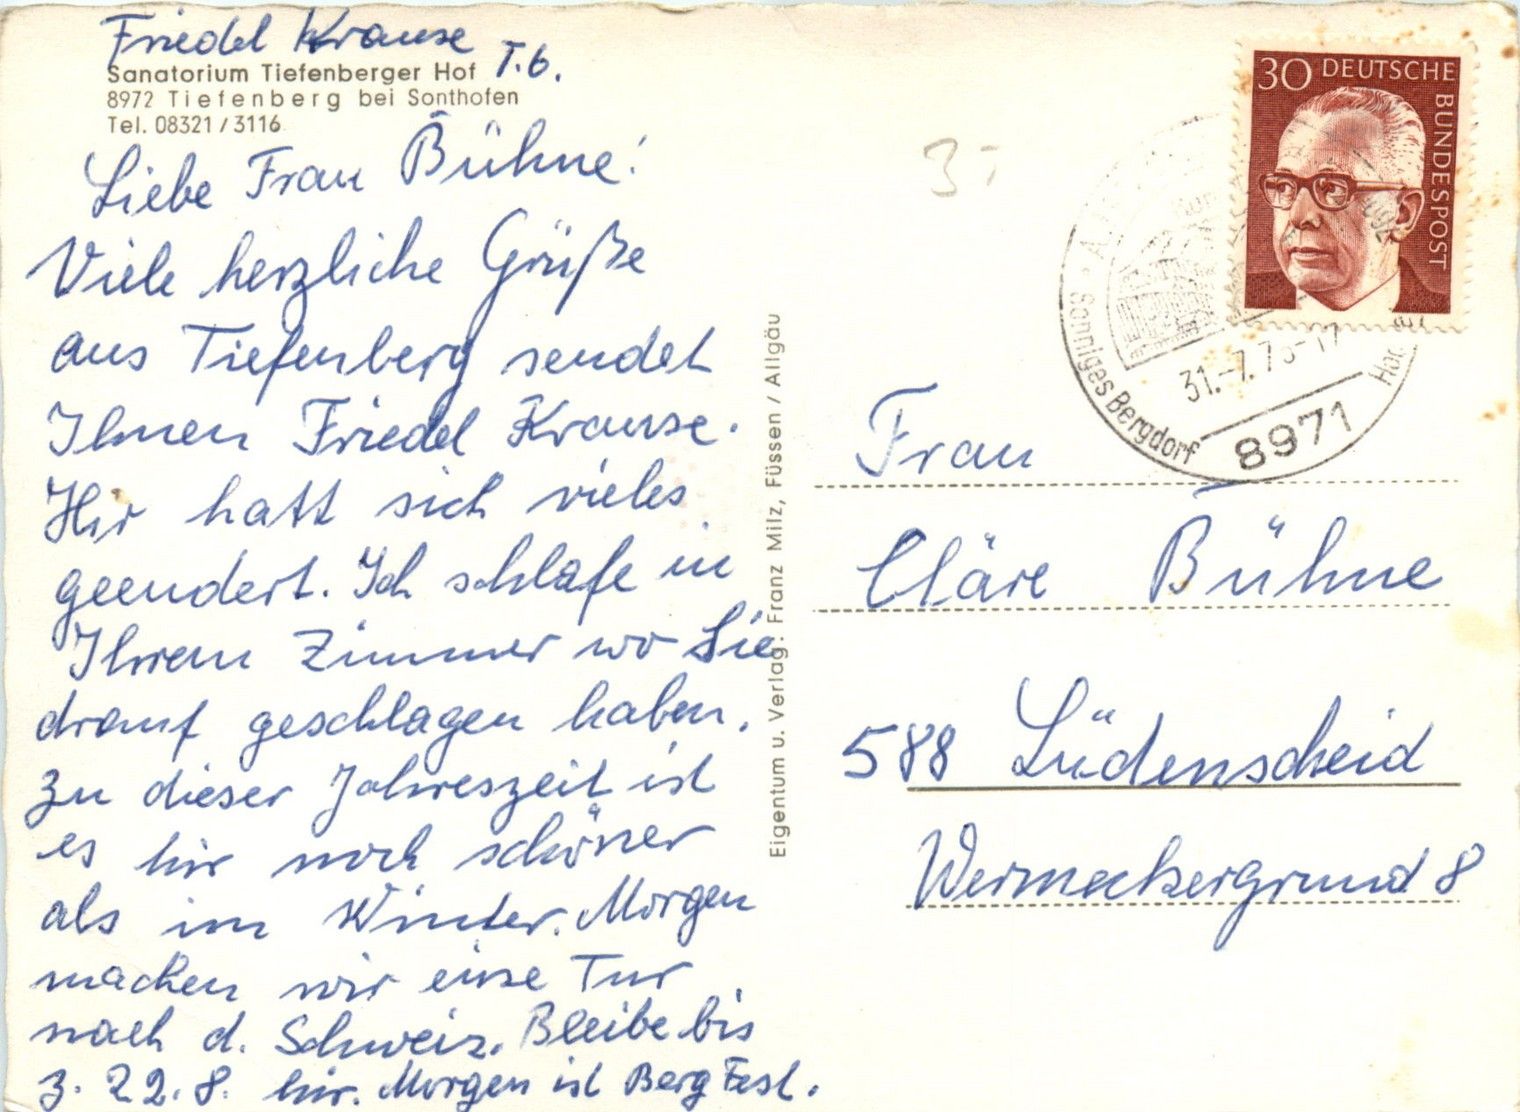 Friedel Krause
Sanatorium Tiefenberger Hof T.6.
8972 Tiefenberg bei Sonthofen
Tel. 08321/3116
Liebe Frau Bühne!
Viele herzliche Grüße
aus Tiefenberg sendet
Ihnen Friedel Krause.
Hir hatt sich vieles
geendert. Ich schlafe in
Ihrem Zimmer wo Sie
drauf geschlagen haben.
Zu dieser Jahreszeit ist
es hir noch schöner
als im Winter. Morgen
machen wir eine Tur
nach d. Schweiz. Bleibe bis
z. 22.8. hir. Morgen ist Berg Fest.
Eigentum u. Verlag: Franz Milz, Füssen / Allgäu
3,-
30 DEUTSCHE
BUNDESPOST
Sonniges Bergdorf
31.-7.73-17
8971
Frau
Cläre Bühne
588 Lüdenscheid
Wermeckergrund 8